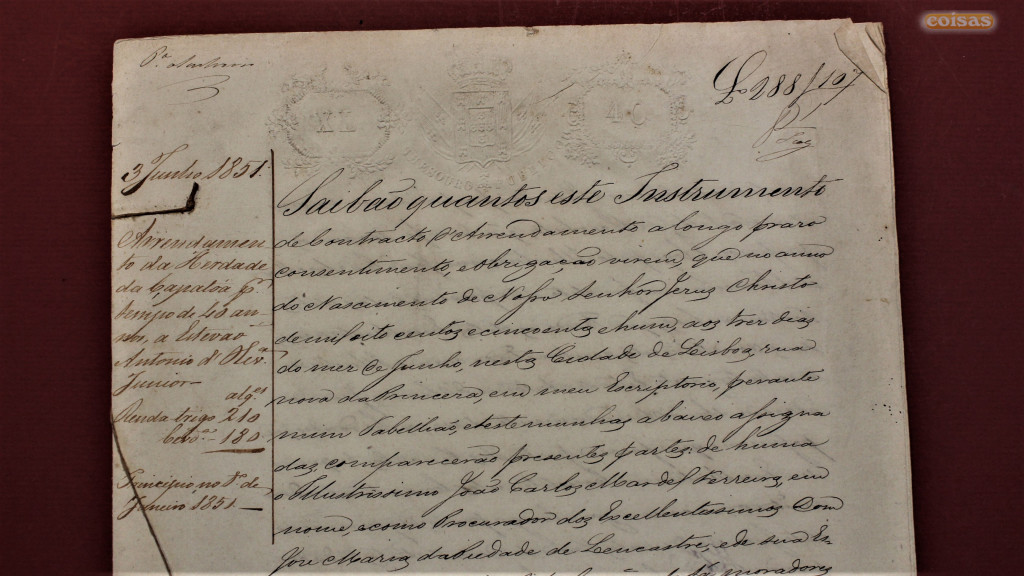 coisas
288
XL
40
3 Junho 1851.
Arrendamen
to da Herdade
da
tempo de 40 an
nos, a Estevão
Antonio d'Olivrª
Junior
alqes
Renda trigo 210
180
Principio, no 1º de
Janeiro 1851
Saibão quantos este Instrumento
de Contracto d'Arrendamento a longo prazo
consentimento, e obrigação virem, que no anno
do Nascimento de Nosso Senhor Jezus Christo
de mil oito centos e cincoenta e hum, aos trez dias
do mez de Junho, nesta Cidade de Lisboa, rua
nova da Princeza, em meu Escriptorio, perante
mim Tabellião, e testemunhas abaixo assigna
das, comparecerão prezentes, partes, de huma
o Illustrissimo João Carlos Mardel Ferreira, em
nome, e como Procurador dos Excellentissimos Dom
José Maria da Piedade de Lencastre, e de sua Es-
moradores